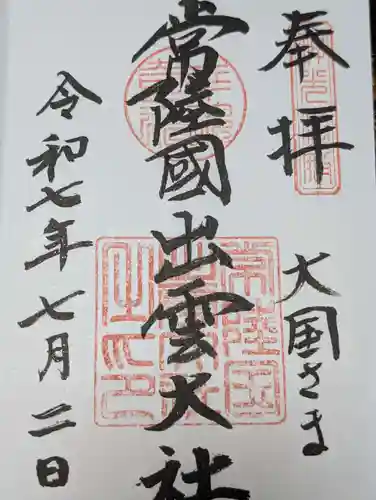 奉拝
大国さま
常陸國出雲大社
令和七年七月二日